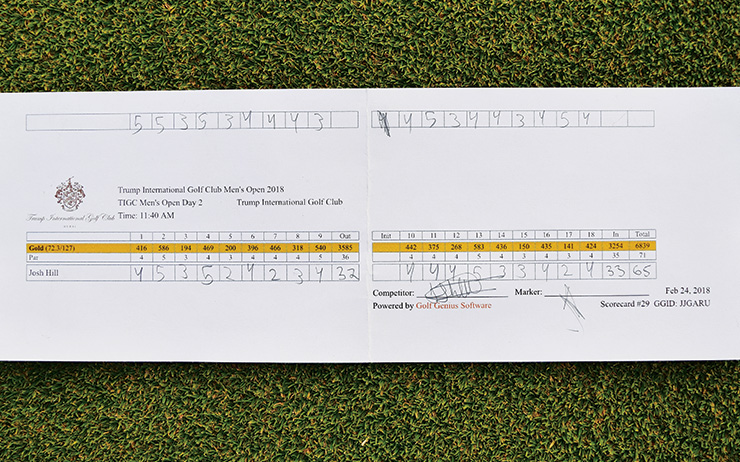 5 5 3 5 3 4 4 4 3 4 5 3 4 4 3 4 5 4
Trump International Golf Club Men's Open 2018
TIGC Men's Open Day 2 Trump International Golf Club
Trump International Golf Club
Time: 11:40 AM
1 2 3 4 5 6 7 8 9 Out Init 10 11 12 13 14 15 16 17 18 In Total
Gold (72.3/127) 416 586 194 469 200 396 466 318 540 3585 442 375 268 583 436 150 435 141 424 3254 6839
Par 4 5 3 4 3 4 4 4 5 36 4 4 4 5 4 3 4 3 4 35 71
Josh Hill 4 5 3 5 2 4 2 3 4 32 4 4 4 5 3 3 4 2 4 33 65
Competitor: Marker: Feb 24, 2018
Powered by Golf Genius Software Scorecard #29 GGID: JJGARU